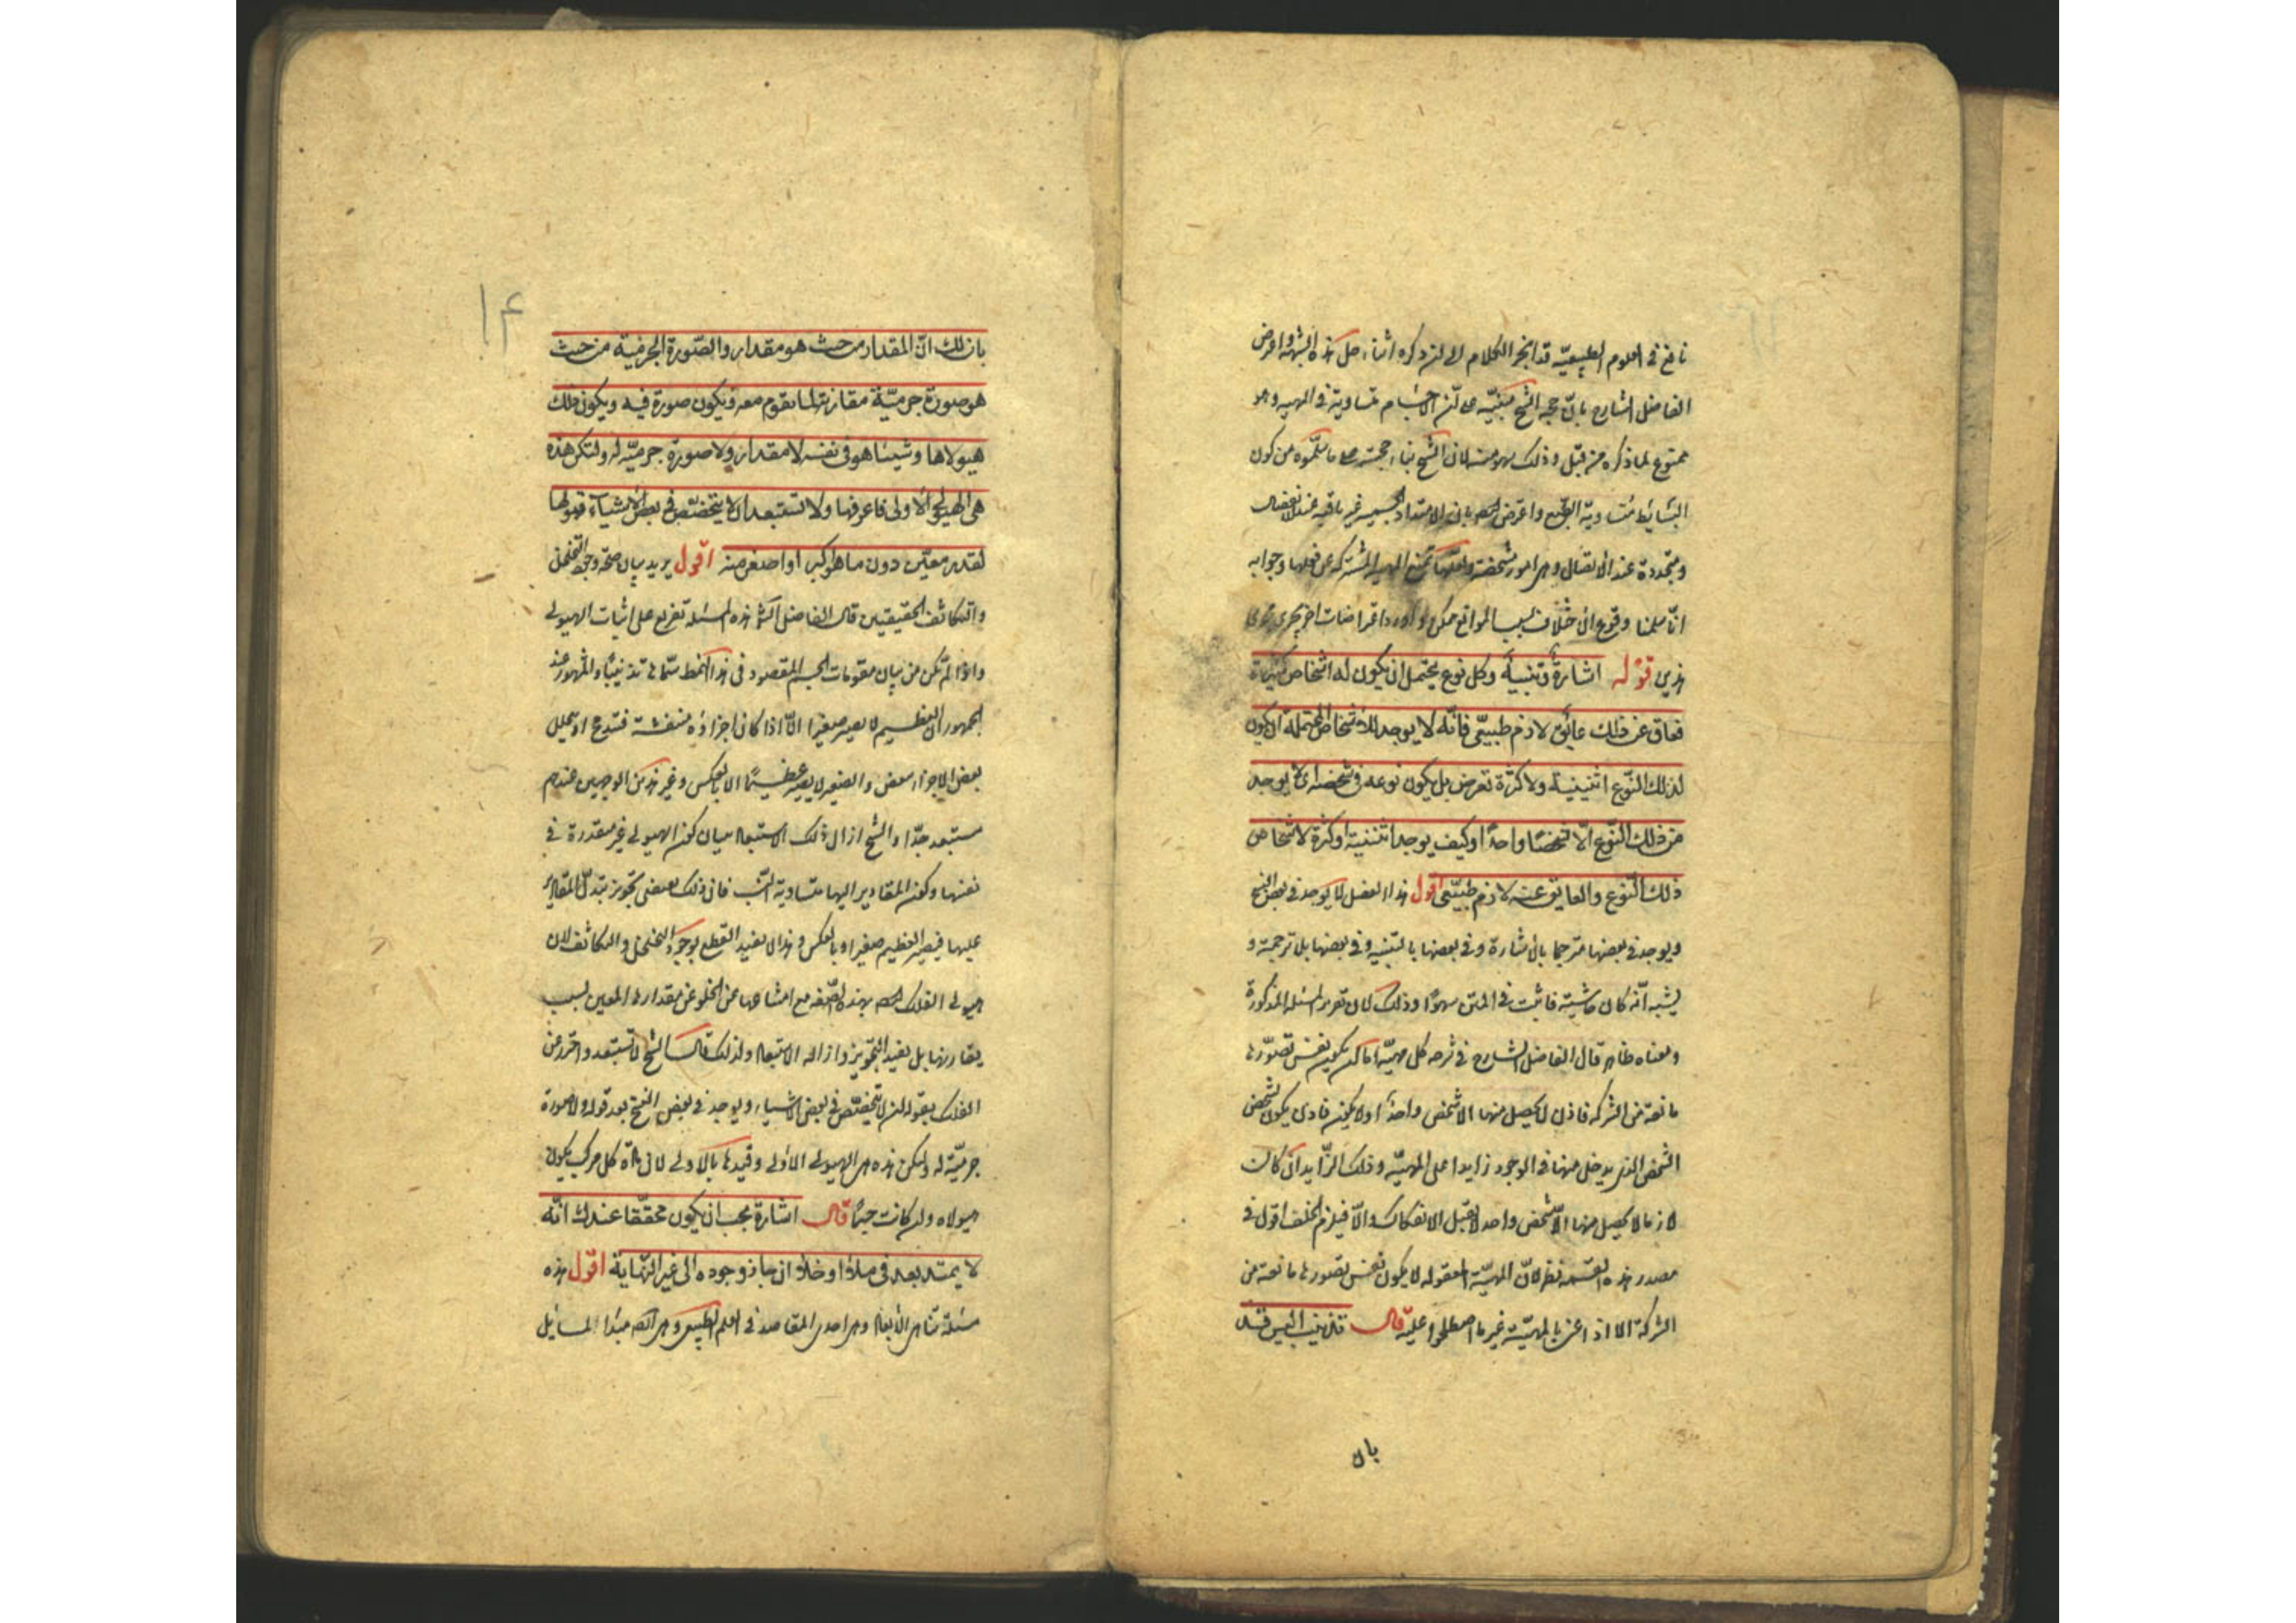 نافع في العلوم الطبيعيّة قد انجرّ الكلام الى ذكره اثناء حل هذه الشبهة واعترض
الفاضل الشارح بانّ حجة الشيخ مبنيّة على انّ الاجسام متساوية في المهية وهو
ممنوع لما ذكره من قبل وذلك سهو منه لان الشيخ بناء حجته على ما سلّموه من كون
البسائط متساوية الطبع واعترض ايضا بان الامتداد الجسمية غير باقية عند الانفصال
ومتجددة عند الاتصال وهي امور متشخصة ولعلّها تمنع المهية المشتركة عن فعلها وجوابه
انّا سلمنا وقوع الاختلاف بسبب الموانع ممكن واورد اعتراضات اخر يجري مجرى
هذين قوله اشارة وتنبيه وكل نوع يحتمل ان يكون له اشخاص كثيرة
فعاق عن ذلك عائق لازم طبيعي فانّه لا يوجد للاشخاص المحتملة ان يكون
لذلك النّوع اثنينية ولا كثرة تعرض بل يكون نوعه في شخصه اى لا يوجد
من ذلك النّوع الّا شخصًا واحدًا وكيف يوجد اثنينية او كثرة لاشخاص
ذلك النّوع والعايق عنه لازم طبيعي اقول هذا الفصل لا يوجد في بعض النسخ
ويوجد في بعضها مترجما بالاشارة وفي بعضها بالتنبيه وفي بعضها بلا ترجمة و
يشبه انّه كان حاشية فاثبت في المتن سهوًا وذلك لان تقرير المسئلة المذكورة
ومعناه ظاهر قال الفاضل الشارح في شرحه كل مهيّة اما ان يكون نفس تصوّرها
مانعة من الشركة فاذن لا يحصل منها الا شخص واحد او لا يكون فاذن يكون تشخص
الشخص الذي يدخل منها في الوجود زايدا على المهيّة وذلك الزّايد ان كان
لازما لا يحصل منها الّا شخص واحد لا يقبل الانفكاك والّا فيلزم الخلف اقول في
مصدر هذه القسمة نظر لانّ المهيّة المعقولة لا يكون نفس تصورها مانعة من
الشركة الا اذا عنى بالمهيّة غير ما اصطلحوا عليه قال تذنيب اليس قد
بان
١٤
بان لك انّ المقدار من حيث هو مقدار والصّورة الجرميّة من حيث
هي صورة جرميّة مقارنة لما يقوم معه ويكون صورة فيه ويكون ذلك
هيولاها وشيئا هو في نفسه لا مقدار ولا صورة جرميّة له ولتكن هذه
هي الهيولى الاولى فاعرفها ولا تستبعد ان لا يتخصّص في بعض الاشياء قبولها
لقدر معيّن دون ما هو اكبر او اصغر منه اقول يريد بيان صحّة وجود التخلخل
والتكاثف الحقيقيين قال الفاضل الشارح هذه المسئلة تفريع على اثبات الهيولى
واذا لم تكن من بيان مقومات الجسم المقصود في هذا النمط سمّاها تذنيبًا والمشهور عند
الجمهور ان العظيم لا يصير صغيرا الّا اذا كان اجزاؤه منفشة فتندمج او يتحلل
بعض الاجزاء بعض والصغير لا يصير عظيمًا الا بالعكس وغير هذين الوجهين عندهم
مستبعد جدّا والشيخ ازال ذلك الاستبعاد ببيان كون الهيولى غير متقدرة في
نفسها وكون المقادير اليها متساوية النّسب فان ذلك يقتضي تجويز تبدّل المقادير
عليها فيصير العظيم صغيرا وبالعكس وهذا لا يفيد القطع بوجود التخلخل والتكاثف لان
هيولى الفلك ايضا بهذه الصّفة مع امتناعها عن الخلو عن مقدارها المعين لسبب
يقارنها بل يفيد التجويز وازالة الاستبعاد ولذلك قال الشيخ لا تستبعد واحترز عن
الفلك بقوله ان لا يتخصّص في بعض الاشياء ويوجد في بعض النسخ بعد قوله ولا صورة
جرميّة له ولتكن هذه هي الهيولى الاولى وقيدها بالاولى لان مادّة كل مركب يكون
هيولاه ولو كانت جسمًا قال اشارة يجب ان يكون محققا عندك انّه
لا يمتد بعد في ملاء او خلاء ان جاز وجوده الى غير النّهاية اقول هذه
مسئلة تناهي الابعاد وهي احدى المقاصد في العلم الطبيعي وهي ايضا مبدا لمسايل